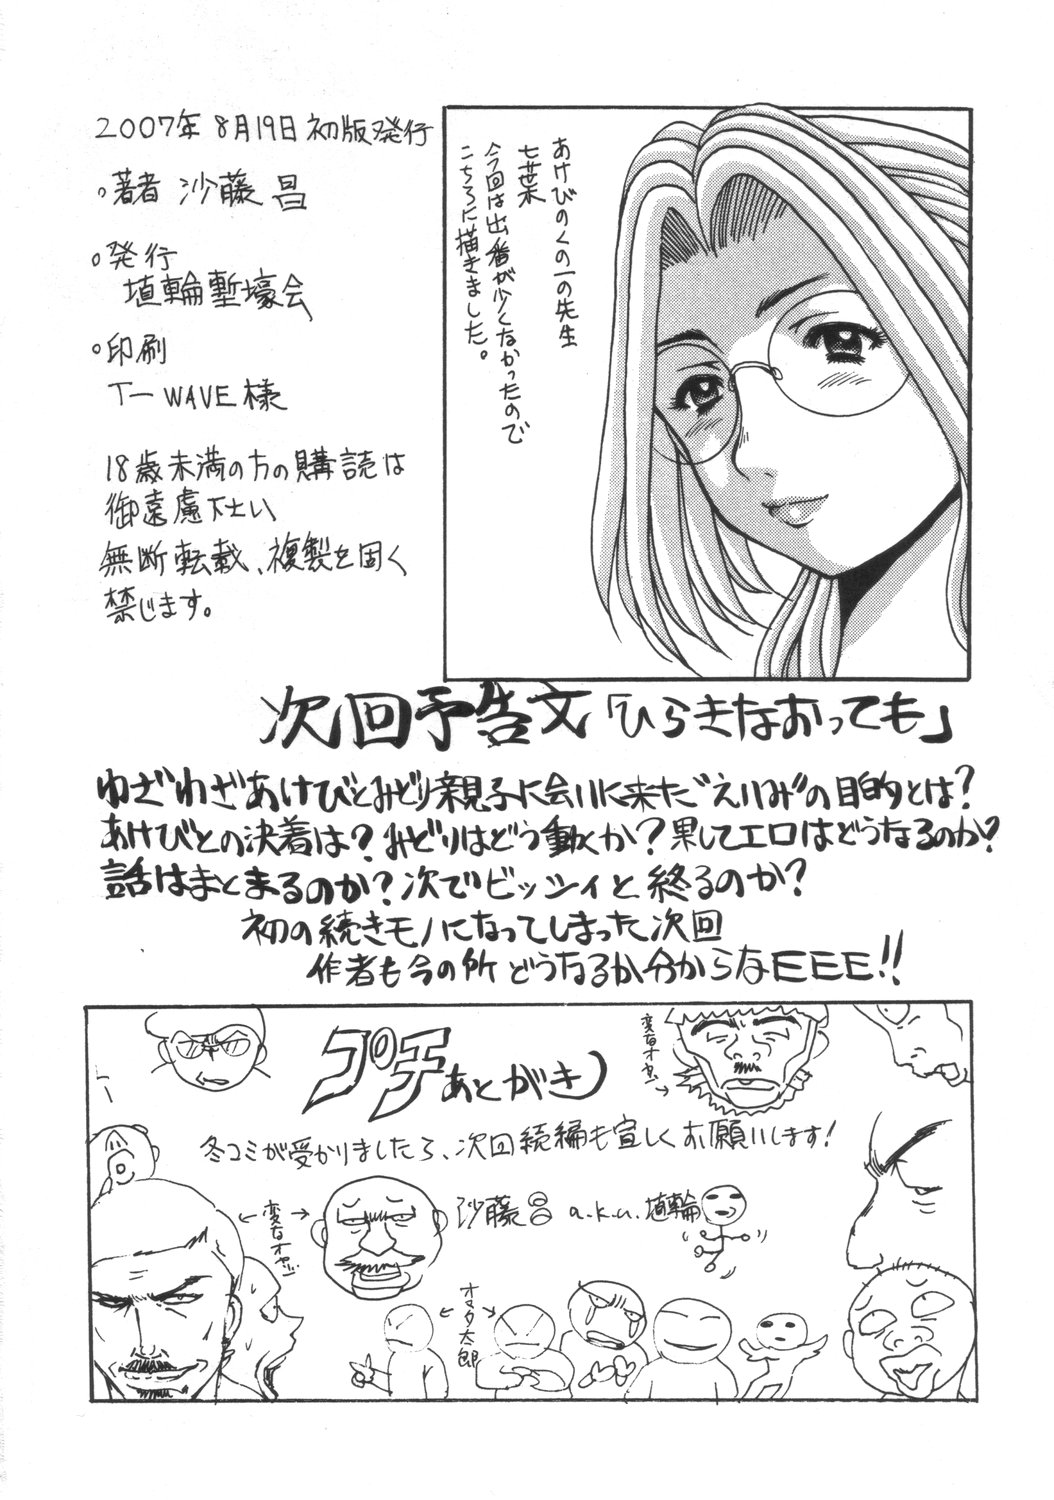 2007年 8月19日 初版発行
。著者 沙藤 昌
。発行
埴輪塹壕会
。印刷
T-WAVE様
18歳未満の方の購読は
御遠慮下さい
無断転載、複製を固く
禁じます。
あけびのくの一の先生
七葉
今回は出番が少くなかったので
こちらに描きました。
次回予告文「ひらきなおっても」
わざわざあけびとみどり親子に会いに来た“えいみ”の目的とは?
あけびとの決着は?みどりはどう動くか?果してエロはどうなるのか?
話はまとまるのか?次でビッシィと終るのか?
初の続きモノになってしまった次回
作者も今の所どうなるか分からなEEE!!
プチあとがき
変なオヤジ→
冬コミが受かりましたら、次回続編も宜しくお願いします!
←変なオヤジ→
沙藤昌 a.k.a.埴輪
←オマタ太郎→